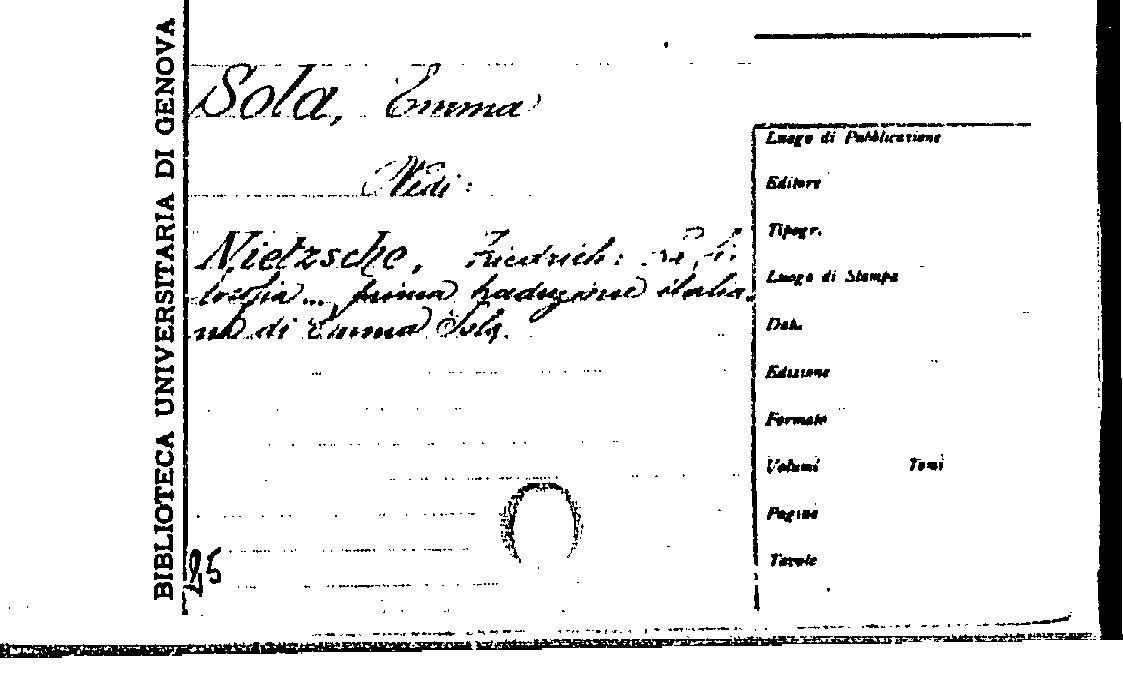 BIBLIOTECA UNIVERSITARIA DI GENOVA
Sola, Emma
Vedi:
Nietzsche, Friedrich:
... prima traduzione italia-
na di Emma Sola.
25
Luogo di Pubblicazione
Editore
Tipogr.
Luogo di Stampa
Data
Edizione
Formato
Volumi Tomi
Pagine
Tavole